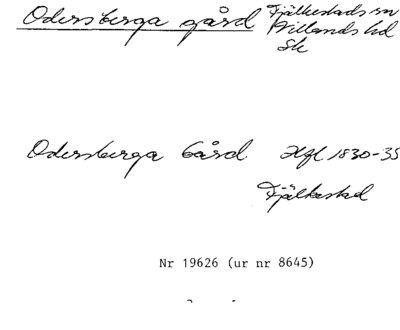 Odersberga gård Fjälkestads sn
Villands hd
Sk
Odersberga Gård Hfl 1830-35
Fjälkestad
Nr 19626 (ur nr 8645)